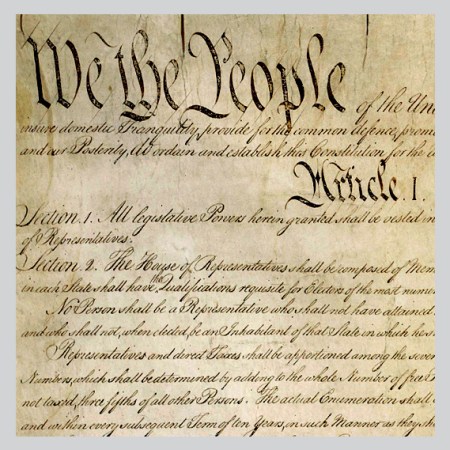 We the People of the Uni
insure domestic Tranquility, provide for the common defence, prom
and our Posterity, do ordain and establish this Constitution for the U
Article. I.
Section. 1. All legislative Powers herein granted shall be vested in
of Representatives.
Section. 2. The House of Representatives shall be composed of Mem
in each State shall have the Qualifications requisite for Electors of the most nume
No Person shall be a Representative who shall not have attained
and who shall not, when elected, be an Inhabitant of that State in which he s
Representatives and direct Taxes shall be apportioned among the seve
Numbers, which shall be determined by adding to the whole Number of free P
not taxed, three fifths of all other Persons. The actual Enumeration shall
and within every subsequent Term of ten Years, in such Manner as they sh